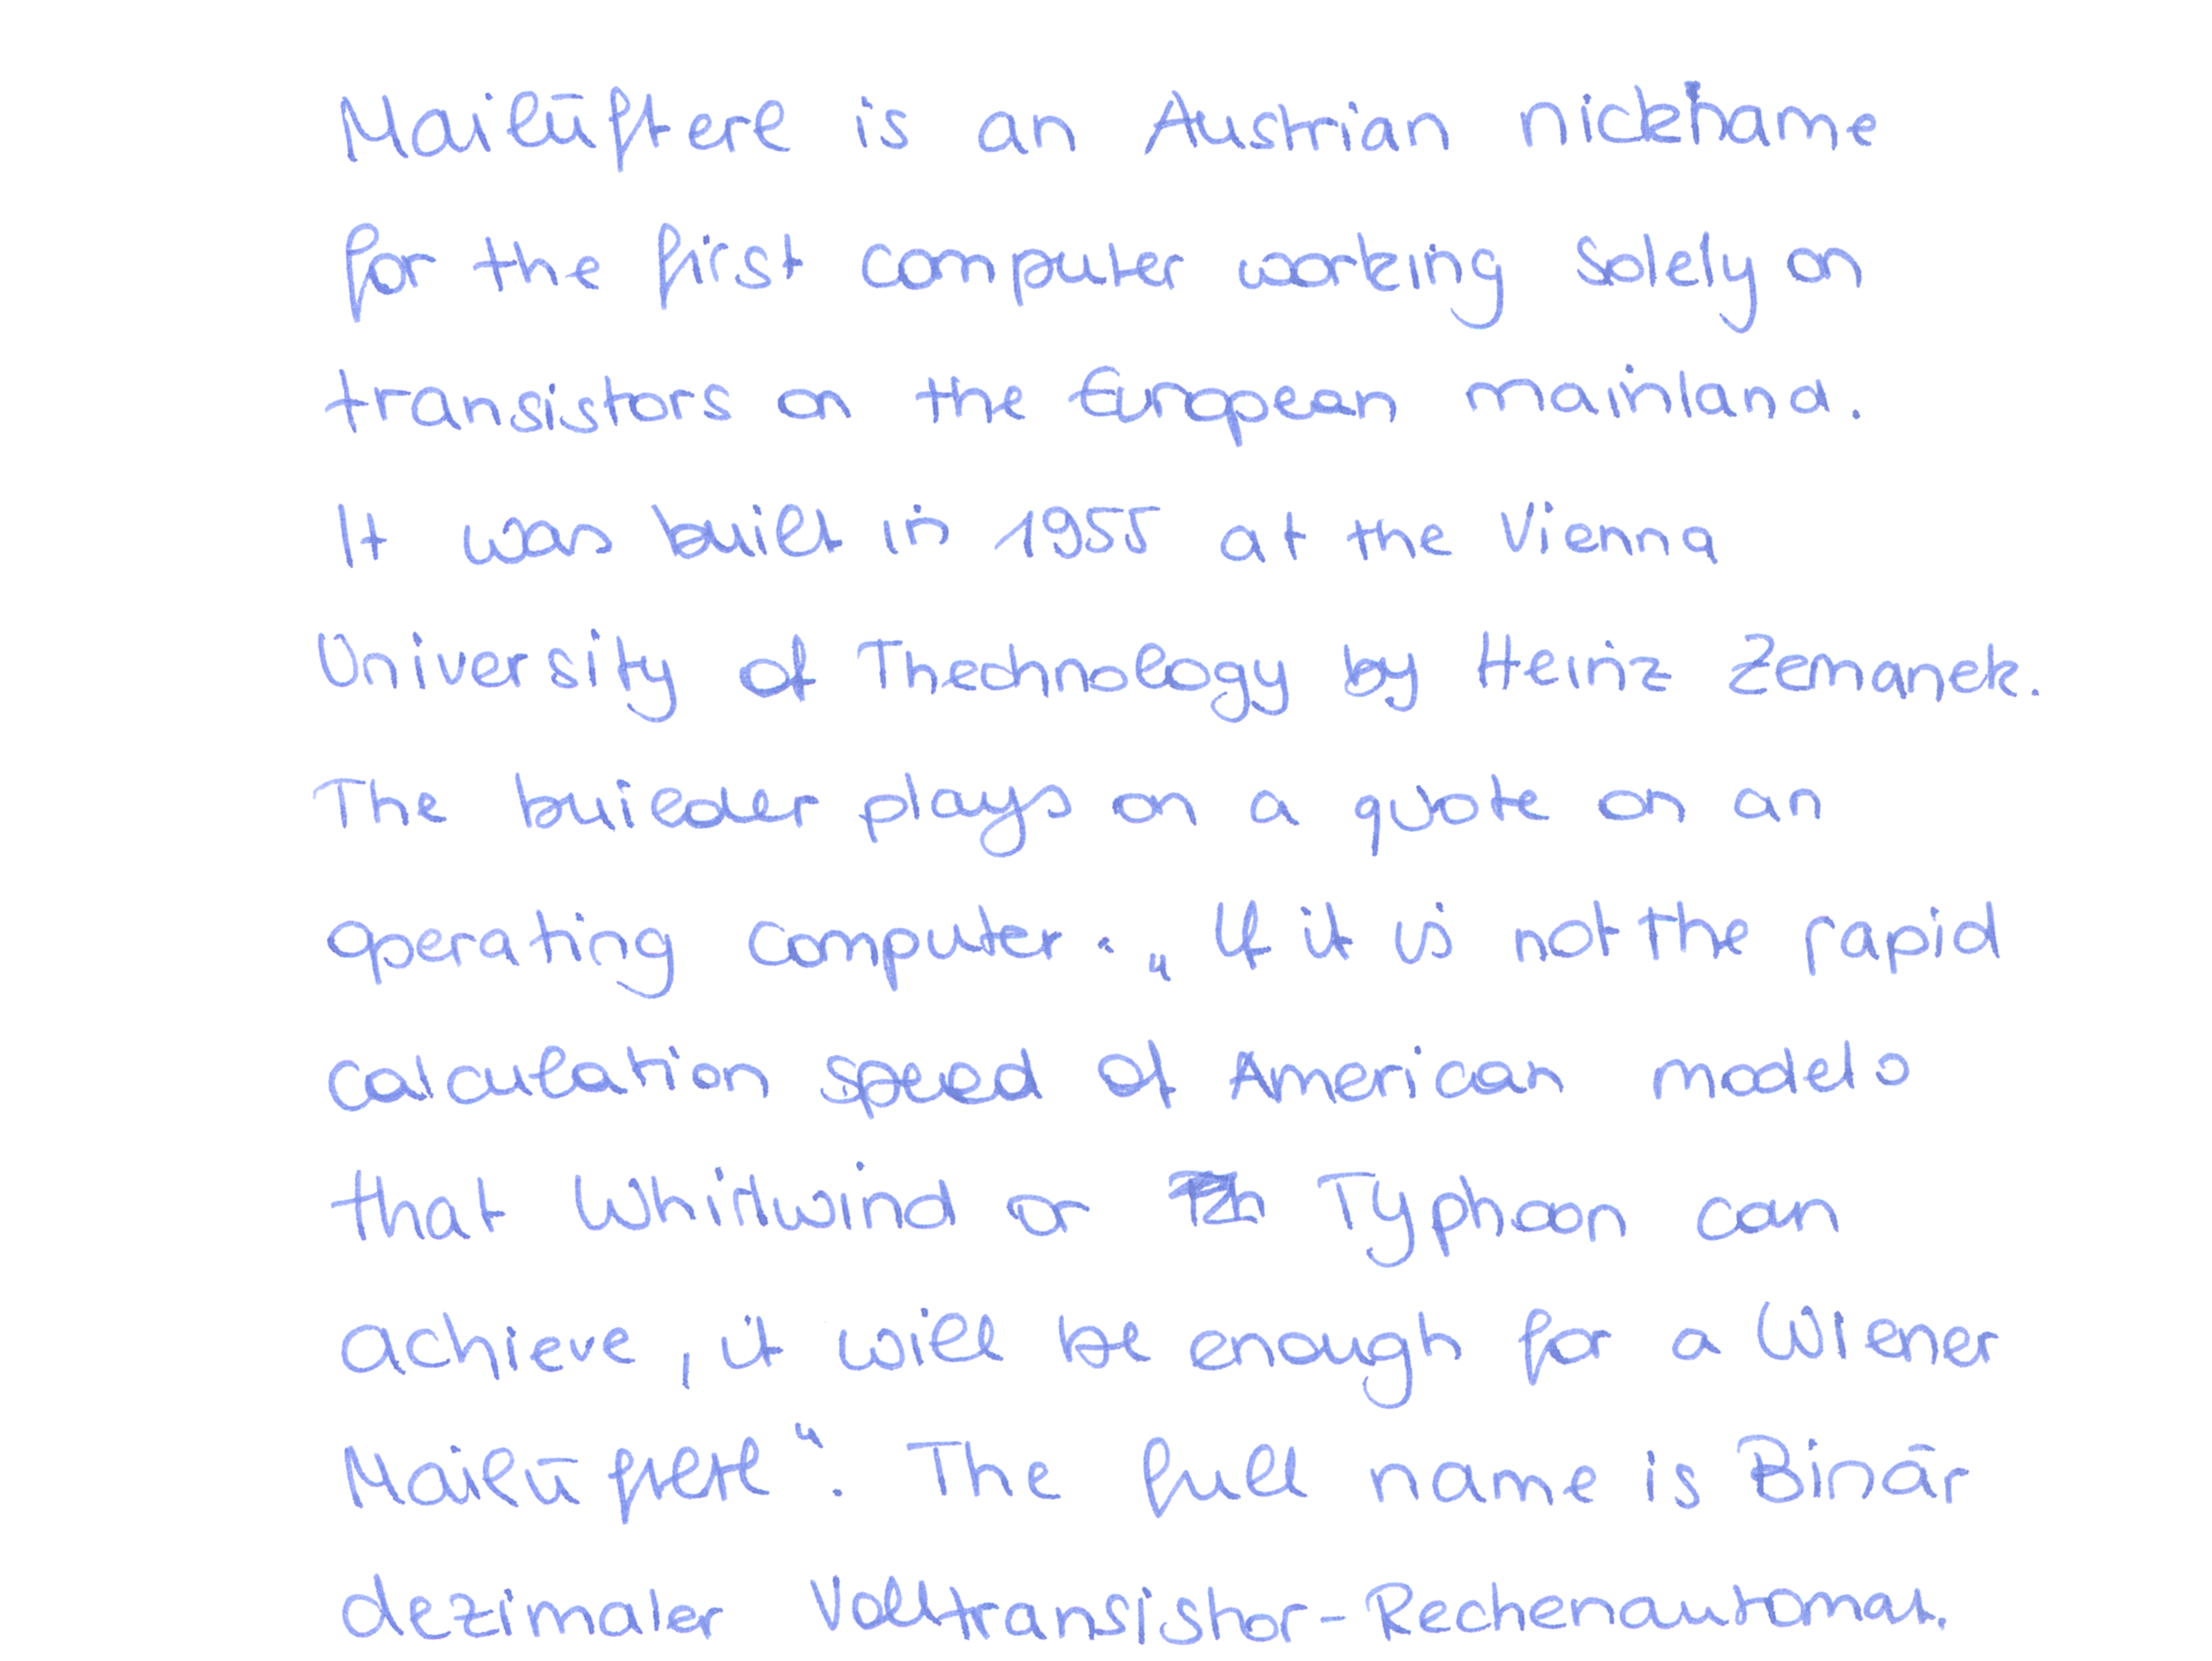 Mailüfterl is an Austrian nickname
for the first computer working solely on
transistors on the European mainland.
It was built in 1955 at the Vienna
University of Thechnology by Heinz Zemanek.
The builder plays on a quote on an
operating computer. „If it is not the rapid
calculation speed of American models
that Whirlwind or Typhoon can
achieve, it will be enough for a Wiener
Mailüfterl“. The full name is Binär
dezimaler Volltransistor-Rechenautomat.